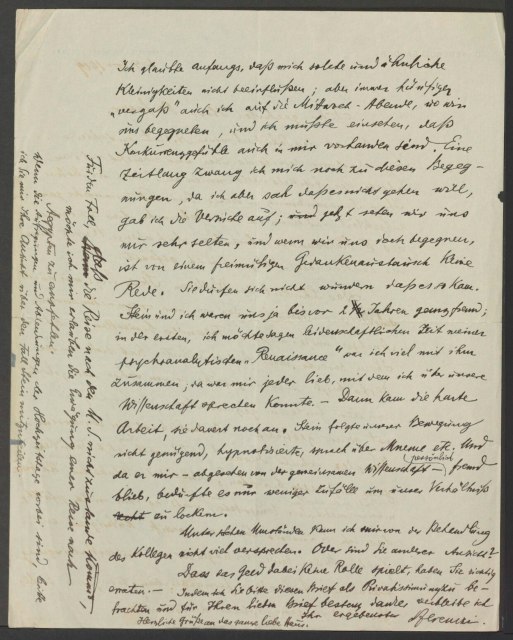 Ich glaubte anfangs, daß mich solche und ähnliche
Kleinigkeiten nicht beeinflußen; aber immer häufiger
„vergaß" auch ich auf die Mittwoch-Abende, wo wir
uns begegneten, und ich mußte einsehen, daß
Konkurenzgefühle auch in mir vorhanden sind. Eine
Zeitlang zwang ich mich noch zu diesen Begeg-
nungen, da ich aber sah daß es nicht gehen will,
gab ich die Versuche auf; und jetzt sehen wir uns
nur sehr selten, und wenn wir uns doch begegnen,
ist von einem freimütigen Gedankenaustausch keine
Rede. Sie dürfen sich nicht wundern daß es so kam.
Stein und ich waren uns ja bis vor 2 Jahren ganz fremd;
in der ersten, ich möchte sagen leidenschaftlichen Zeit meiner
psychoanalytischen „Renaissance" war ich viel mit ihm
zusammen; da war mir jeder lieb, mit dem ich über unsere
Wissenschaft sprechen konnte. — Dann kam die harte
Arbeit, sie dauert noch an. Stein folgte unserer Bewegung
nicht genügend, hypnotisierte, sprach über Mneme etc. Und
da er mir — abgesehen von der gemeinsamen Wissenschaft — persönlich fremd
blieb, bedurfte es nur weniger Zufälle um unser Verhältniß
zu lockern.
Unter solchen Umständen kann ich mir von der Behandlung
des Kollegen nicht viel versprechen. Oder sind Sie anderer Ansicht?
Dass das Geld dabei keine Rolle spielt, haben Sie richtig
erraten. — Indem ich Sie bitte diesen Brief als Privatissimum zu be-
trachten und für Ihren lieben Brief bestens danke verbleibe ich
Ihr ergebenster Ferenczi
Herzliche Grüße an das ganze liebe Haus.
Für den Fall, daß die Reise nach den U. S. nicht zustande kommt,
möchte ich mir erlauben die Erwägung einer Reise nach
Aegypten zu empfehlen.
Wenn die Aufregungen und Ablenkungen der Hochzeitstage vorbei sind, bitte
ich Sie mir Ihre Ansicht über den Fall Stein mitzuteilen.